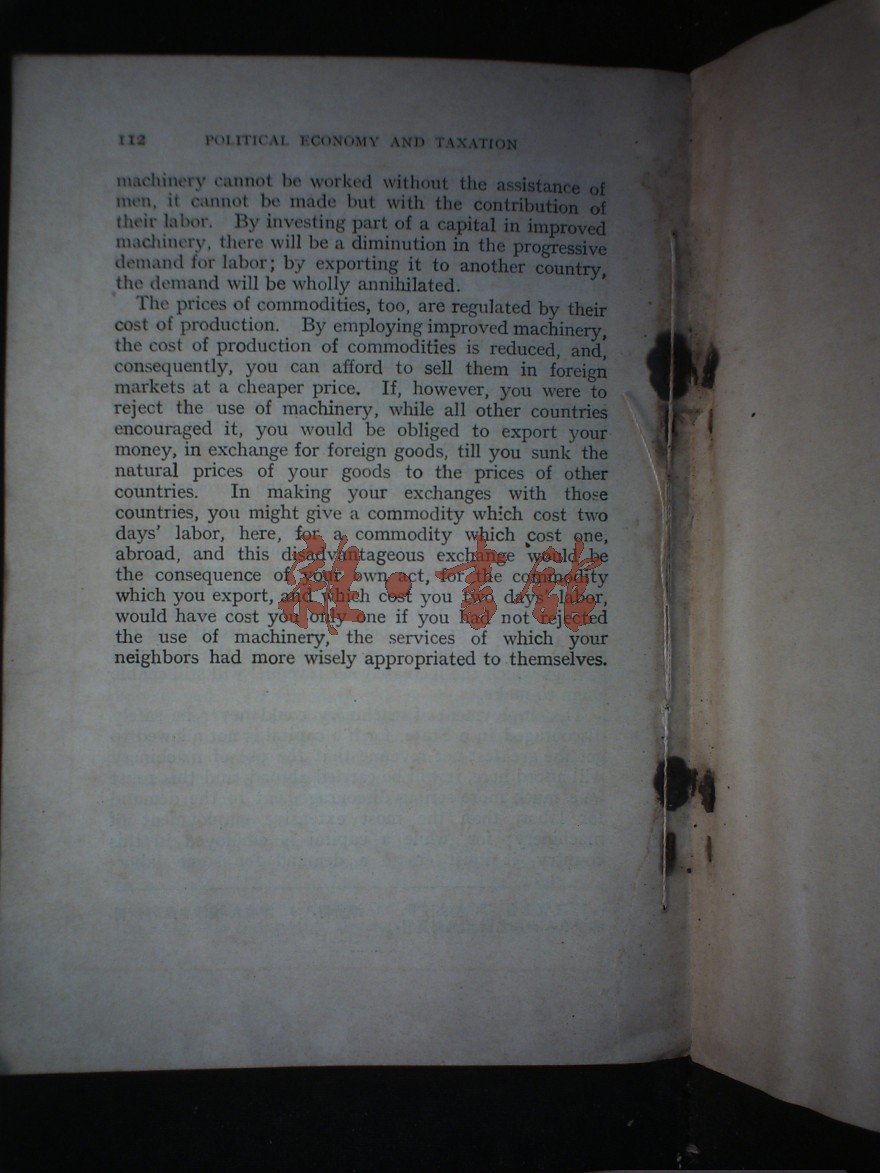 112 POLITICAL ECONOMY AND TAXATION
machinery cannot be worked without the assistance of
men, it cannot be made but with the contribution of
their labor. By investing part of a capital in improved
machinery, there will be a diminution in the progressive
demand for labor; by exporting it to another country,
the demand will be wholly annihilated.
The prices of commodities, too, are regulated by their
cost of production. By employing improved machinery,
the cost of production of commodities is reduced, and,
consequently, you can afford to sell them in foreign
markets at a cheaper price. If, however, you were to
reject the use of machinery, while all other countries
encouraged it, you would be obliged to export your
money, in exchange for foreign goods, till you sunk the
natural prices of your goods to the prices of other
countries. In making your exchanges with those
countries, you might give a commodity which cost two
days' labor, here, for a commodity which cost one,
abroad, and this disadvantageous exchange would be
the consequence of your own act, for the commodity
which you export, and which cost you two days' labor,
would have cost you only one if you had not rejected
the use of machinery, the services of which your
neighbors had more wisely appropriated to themselves.